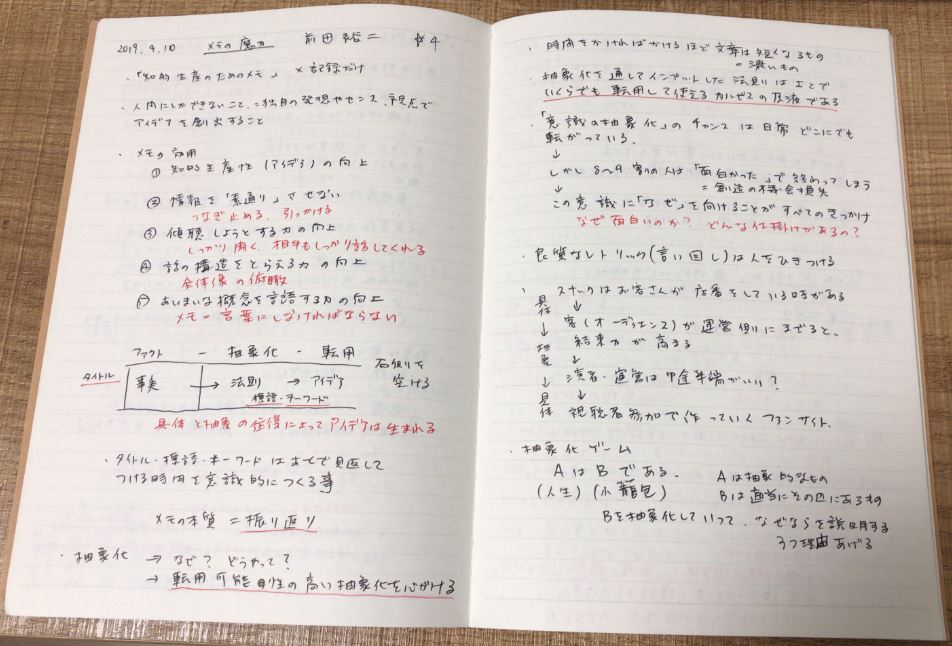 2019.4.10 メモの魔力 前田裕二 #4
・「知的生産のためのメモ」 × 記録だけ
・人間にしかできないこと、=独自の発想やセンス、視点で
アイデアを創出すること
・メモの効用
① 知的生産性(アイデア)の向上
② 情報を「素通り」させない
つなぎ止める、引っかける
③ 傾聴しようとする力の向上
しっかり聞く、相手もしっかり話してくれる
④ 話の構造をとらえる力の向上
全体像の俯瞰
⑤ あいまいな概念を言語する力の向上
メモ=言葉にしなければならない
ファクト - 抽象化 - 転用
タイトル 事実 → 法則 → アイデア
標語・キーワード
右側を
空ける
具体と抽象の往復によってアイデアは生まれる
・タイトル・標語・キーワードはあとで見返して
つける時間を意識的につくる事
メモの本質=振り返り
・抽象化 → なぜ? どうやって?
→ 転用可能性の高い抽象化を心がける
・時間をかければかけるほど文章は短くなるもの
=濃いもの
・抽象化を通してインプットした法則はあとで
いくらでも転用して使えるカルピスの原液である
・「意識の抽象化」のチャンスは日常どこにでも
転がっている。
↓
しかし8〜9割の人は「面白かった」で終わってしまう
=創造の機会損失
↓
この意識に「なぜ」を向けることがすべてのきっかけ
なぜ面白いのか? どんな仕掛けがあるの?
・良質なレトリック(言い回し)は人をひきつける
・スナックはお客さんが店番をしている時がある
具体 ↓ 抽象 ↓ 具体
↓
客(オーディエンス)が運営側にまざると、
結束力が高まる
↓
演者・運営は中途半端がいい?
↓
視聴者参加で作っていくファンサイト。
・抽象化ゲーム
AはBである。
(人生)(小籠包)
Aは抽象的なもの
Bは適当にその辺にあるもの
Bを抽象化していって、なぜならを説明する
3つ理由あげる